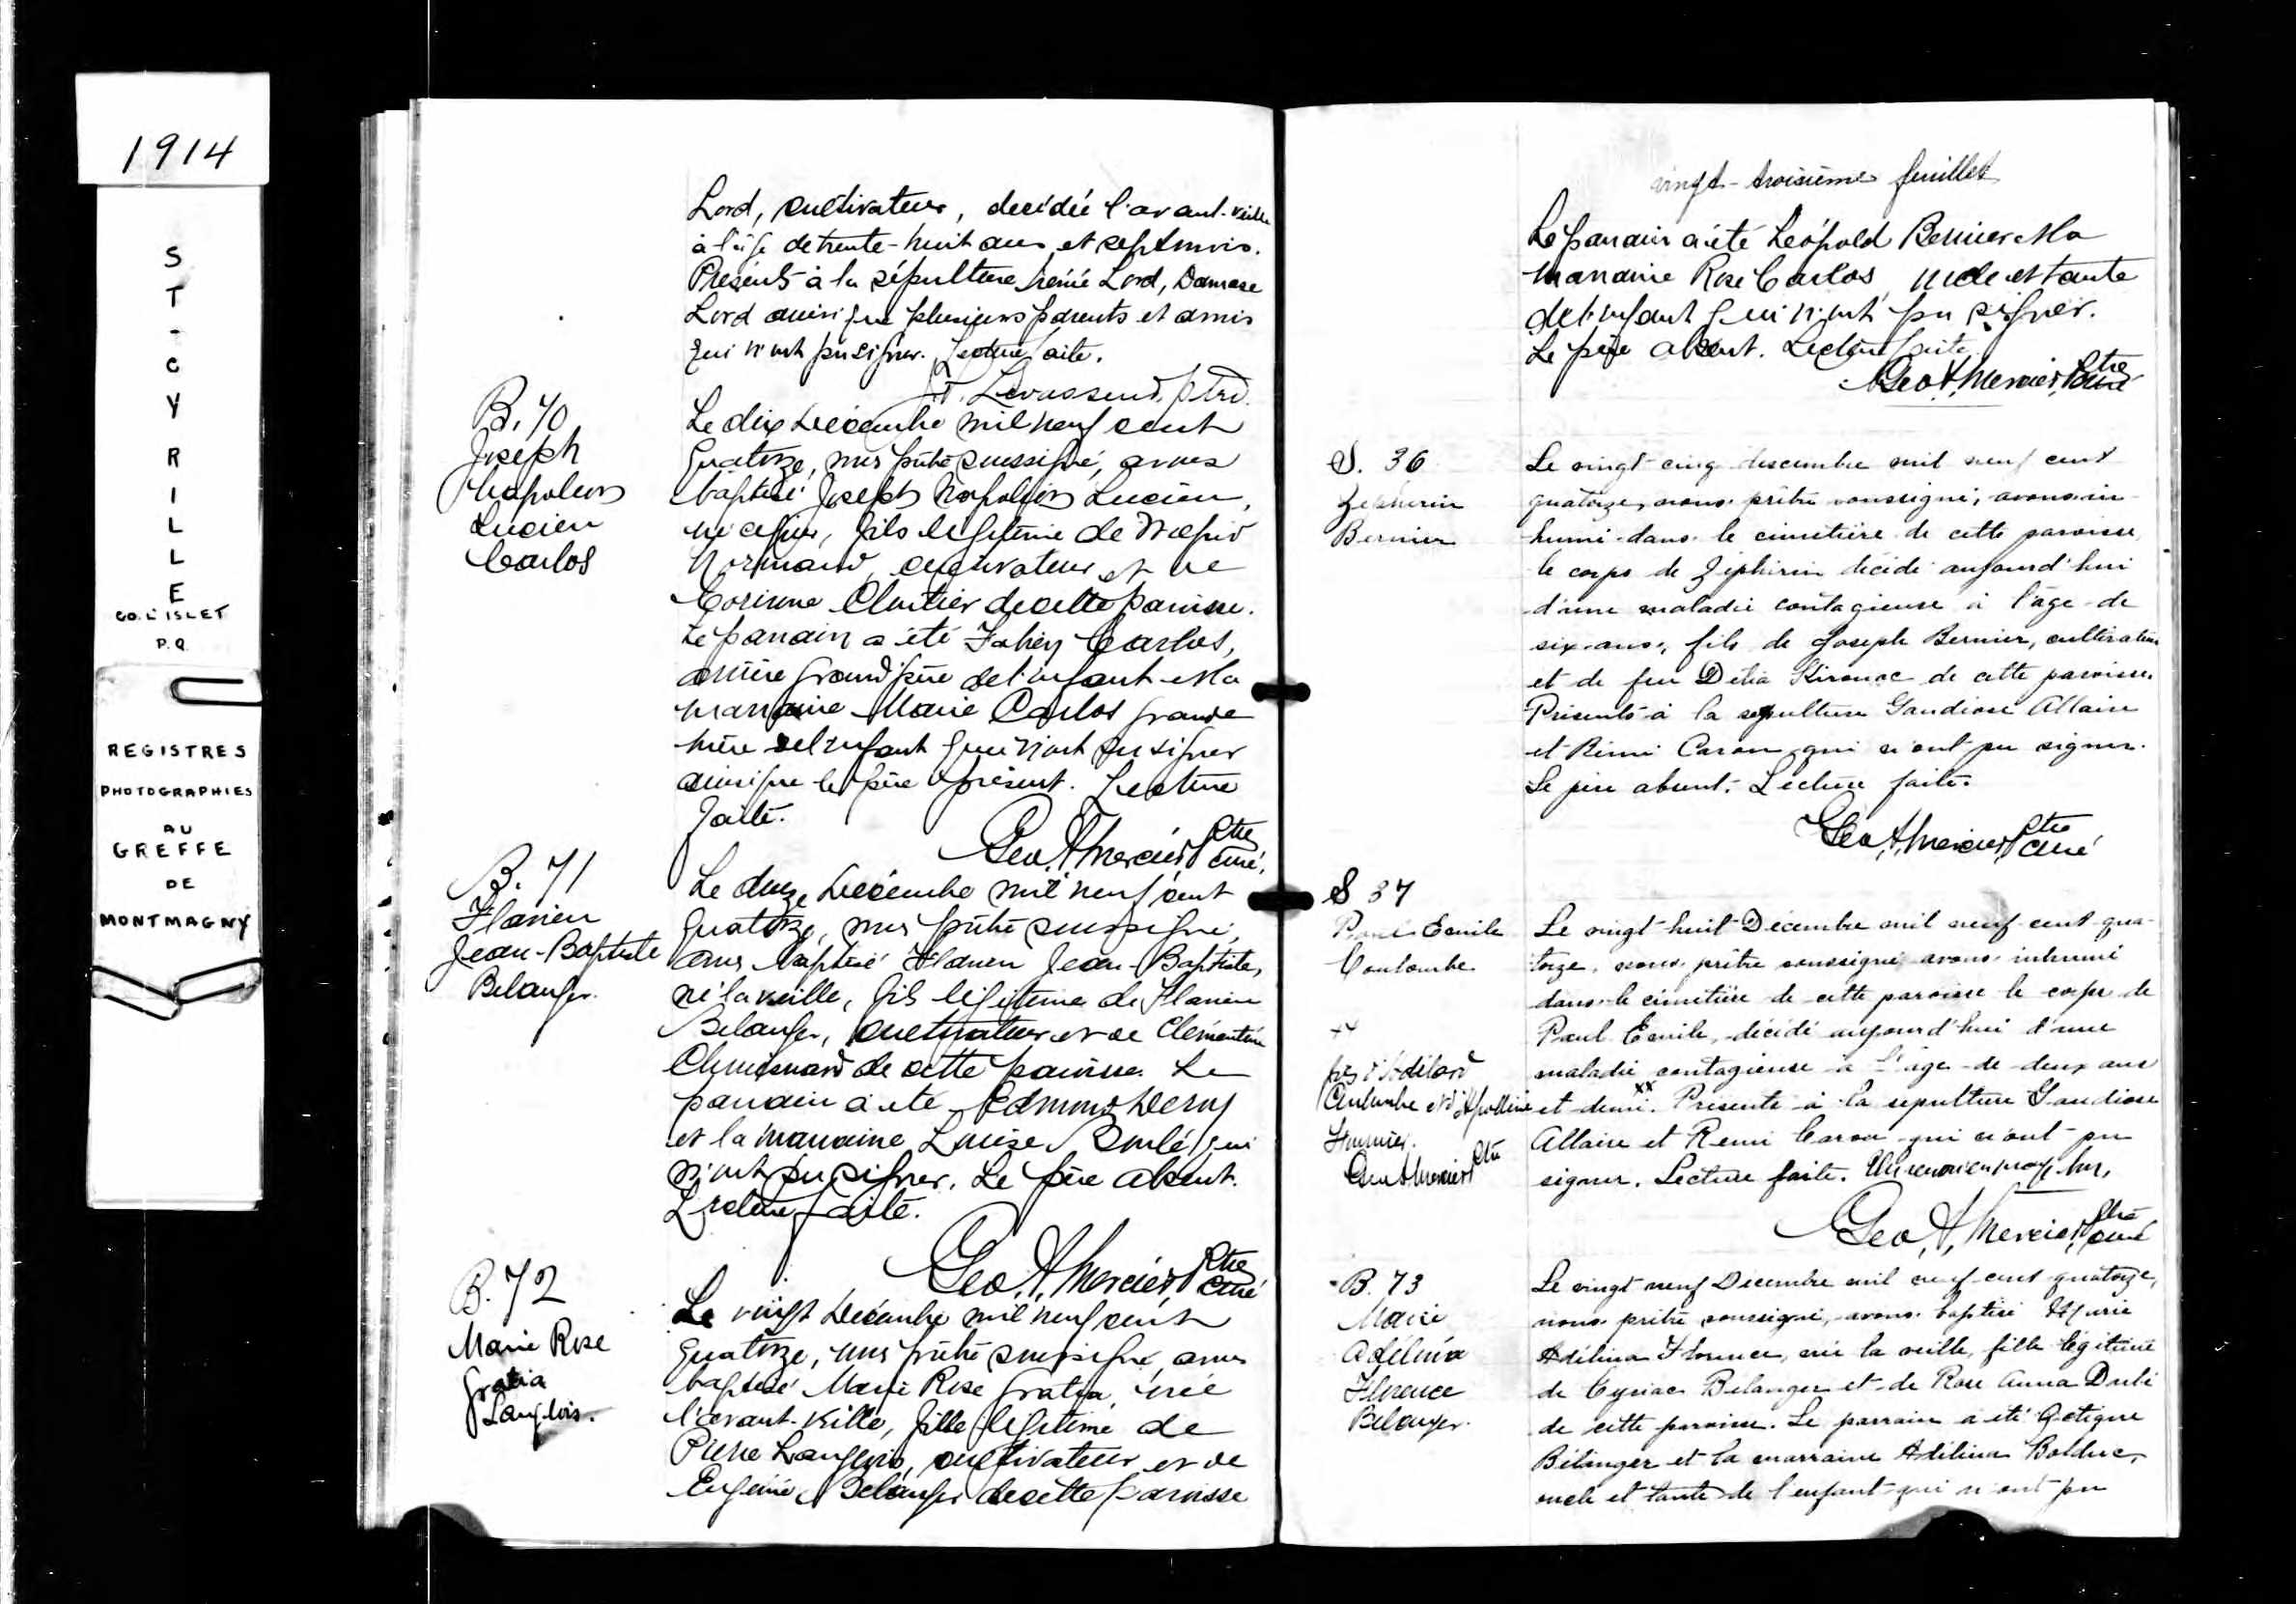 1914
ST-CYRILLE
CO. L'ISLET
P.Q.
REGISTRES
PHOTOGRAPHIES
AU
GREFFE
DE
MONTMAGNY
Lord, cultivateur, decédée l'avant-veille
à l'âge de trente-huit ans et sept mois.
Présents à la sépulture Lord, Damase
Lord ainsi que plusieurs parents et amis
qui n'ont pu signer. Lecture faite.
Levasseur, ptre.
B. 70
Joseph
Napoléon
Lucien
Carlos
Le dix Décembre mil neuf cent
quatorze, nous prêtre soussigné, avons
baptisé Joseph Napoléon Lucien,
né ce jour, fils légitime de
Normand, cultivateur et de
Corinne Cloutier de cette paroisse.
Le parrain a été Carlos,
arrière grand père de l'enfant. La
marraine Marie Carlos grande
mère de l'enfant qui n'ont pu signer
ainsi que le père présent. Lecture
faite.
Geo. A. Mercier, Ptre
Curé.
B. 71
Flavien
Jean-Baptiste
Belanger.
Le douze Décembre mil neuf cent
quatorze, nous prêtre soussigné,
avons baptisé Flavien Jean-Baptiste,
né la veille, fils légitime de Flavien
Belanger, cultivateur et de Clémentine
Chouinard de cette paroisse. Le
parrain a été Edmond
et la marraine Louise qui
n'ont pu signer. Le père absent.
Lecture faite.
Geo. A. Mercier, Ptre
Curé
B. 72
Marie Rose
Gratia
Langlois.
Le vingt Décembre mil neuf cent
quatorze, nous prêtre soussigné, avons
baptisé Marie Rose Gratia, née
l'avant-veille, fille légitime de
Pierre Langlois, cultivateur et de
Eugénie Belanger de cette paroisse
vingt-troisième feuillet
Le parrain a été Léopold Bernier. La
marraine Rose Carlos, oncle et tante
de l'enfant qui n'ont pu signer.
Le père absent. Lecture faite.
Geo A. Mercier Ptre
Curé
S. 36
Zephirin
Bernier
Le vingt cinq decembre mil neuf cent
quatorze, nous prêtre soussigné, avons in-
humé dans le cimetière de cette paroisse,
le corps de Zéphirin décédé aujourd'hui
d'une maladie contagieuse à l'âge de
six ans, fils de Joseph Bernier, cultivateur
et de feu Délia Kirouac de cette paroisse.
Présents à la sépulture Gaudiose Allaire
et Rémi Caron qui n'ont pu signer.
Le père absent. Lecture faite.
Geo A. Mercier Ptre
Curé
S 37
Paul Emile
Coulombe
Le vingt-huit Décembre mil neuf cent qua-
torze, nous prêtre soussigné avons inhumé
dans le cimetière de cette paroisse le corps de
Paul Emile, décédé aujourd'hui d'une
maladie contagieuse à l'âge de deux ans
et demi. xx Présents à la sépulture Gaudiose
Allaire et Remi Caron qui n'ont pu
signer. Lecture faite.
Geo. A. Mercier, Ptre
Curé
xx
fils d'Adélard
Coulombe et d'Apolline
Geo A Mercier Ptre
B. 73
Marie
Adélina
Florence
Belanger.
Le vingt neuf Décembre mil neuf cent quatorze,
nous prêtre soussigné, avons baptisé Marie
Adélina Florence, née la veille, fille légitime
de Cyriac Belanger et de Rose Anna Dubé
de cette paroisse. Le parrain a été
Bélanger et la marraine Adélina Bolduc,
oncle et tante de l'enfant qui n'ont pu